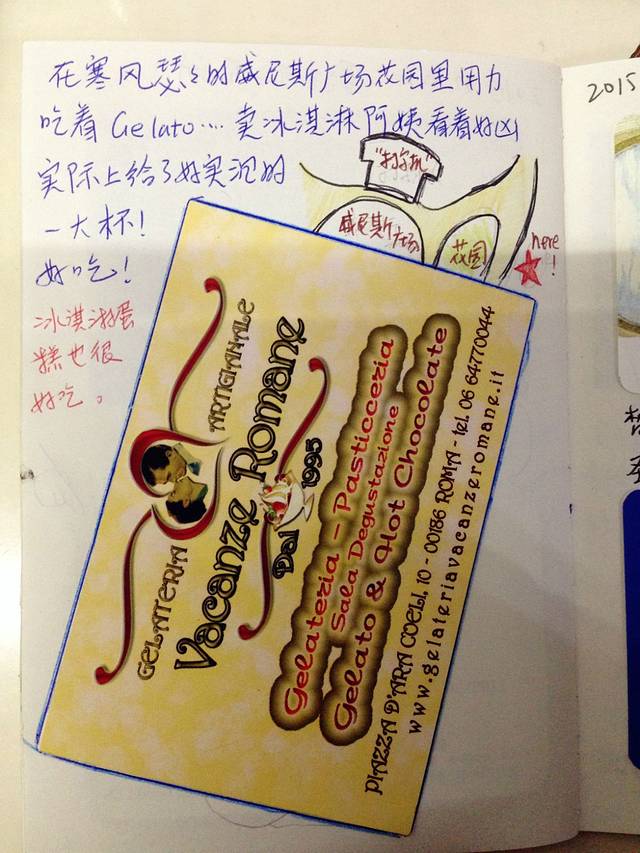 在寒风瑟々的威尼斯广场花园里用力
吃着 Gelato…. 卖冰淇淋阿姨看着好凶
实际上给了好实沉的
一大杯!
好吃!
冰淇淋蛋
糕也很
好吃。
"打字机"
威尼斯广场
花园
here
!
2015
GELATERIA ARTIGIANALE
Vacanze Romane
Dal 1995
Gelateria - Pasticceria
Sala Degustazione
Gelato & Hot Chocolate
PIAZZA D'ARA COELI, 10 - 00186 ROMA - tel. 06 64770044
www.gelateriavacanzeromane.it